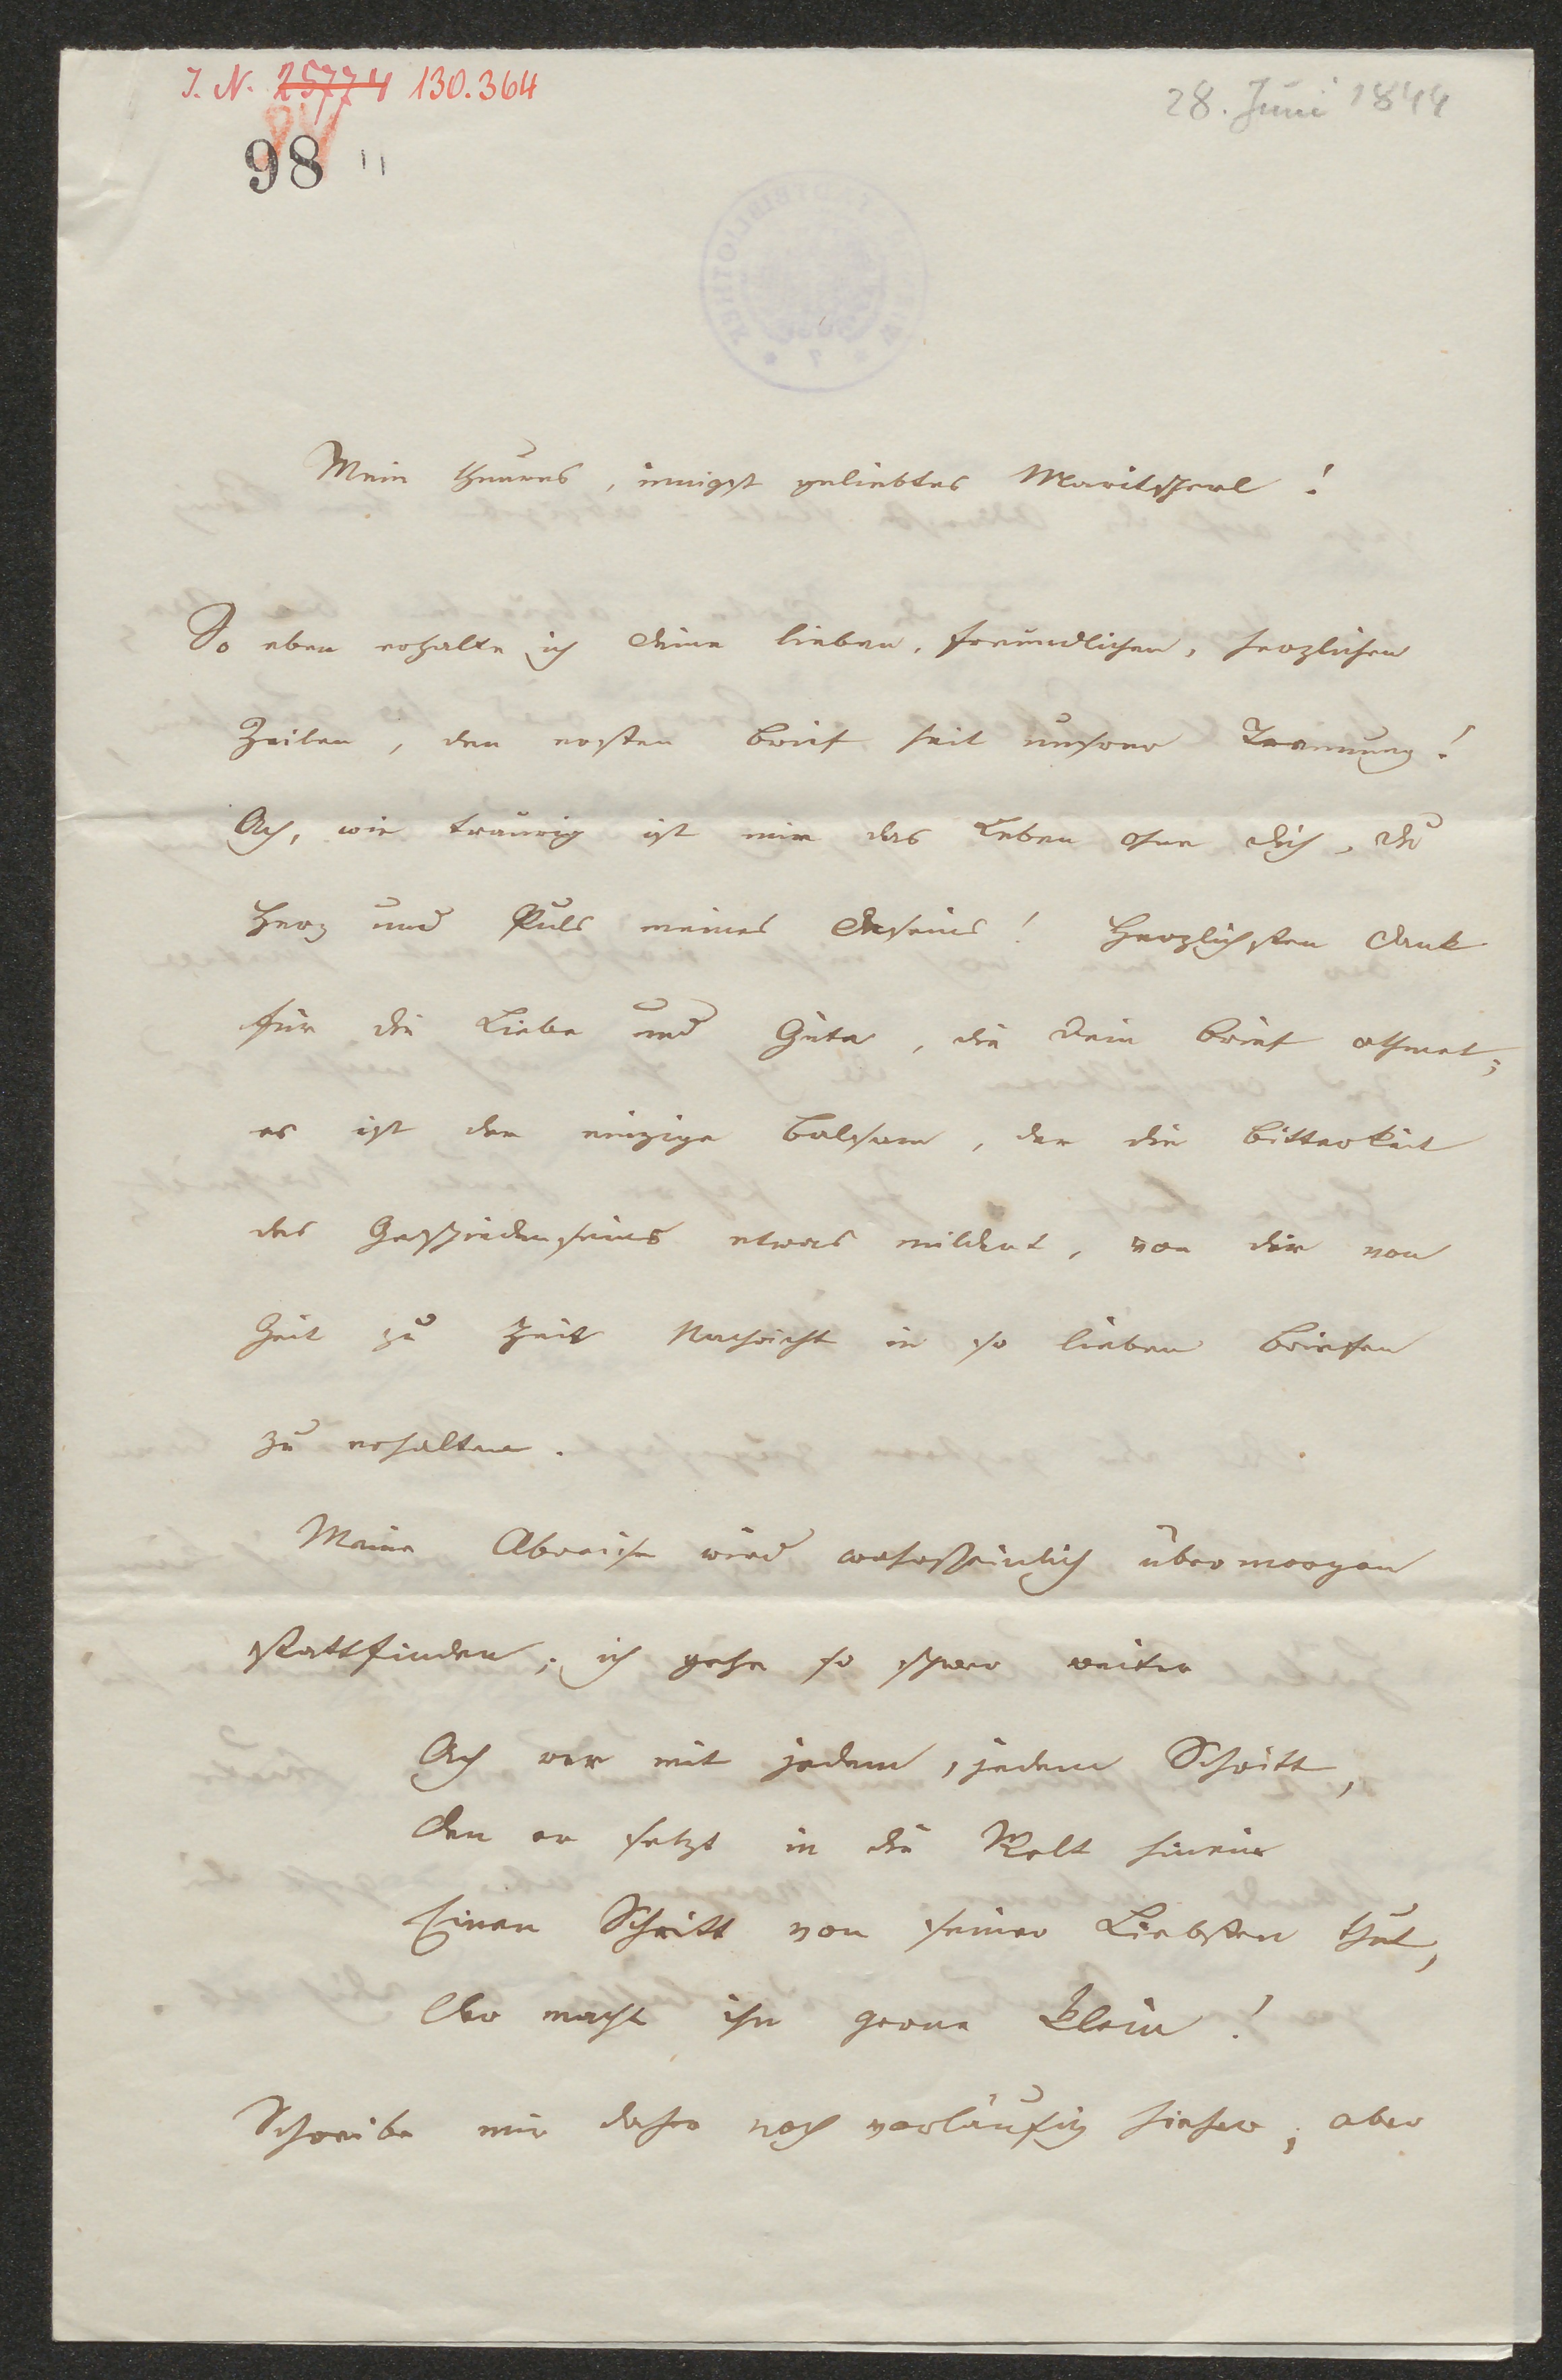 I. N. 25774 130.364
28. Juni 1844
98
Mein theures, innigst geliebtes Maritscherl!
So eben erhalte ich deine lieben, freundlichen, herzlichen
Zeilen, den ersten Brief seit unserer Trennung!
Ach, wie traurig ist mir das Leben ohne dich, du
Herz und Puls meines Daseins! Herzlichsten Dank
für die Liebe und Güte, die dein Brief athmet;
es ist der einzige Balsam, der die Bitterkeit
des Geschiedenseins etwas mildert, von dir von
Zeit zu Zeit Nachricht in so lieben Briefen
zu erhalten.
Meine Abreise wird wahrscheinlich übermorgen
stattfinden; ich gehe so schwer weiter
Ach wer mit jedem, jedem Schritt,
Den er setzt in die Welt hinein
Einen Schritt von seiner Liebsten thut,
Der macht ihn gerne klein!
Schreibe mir daher noch vorläufig hieher, aber